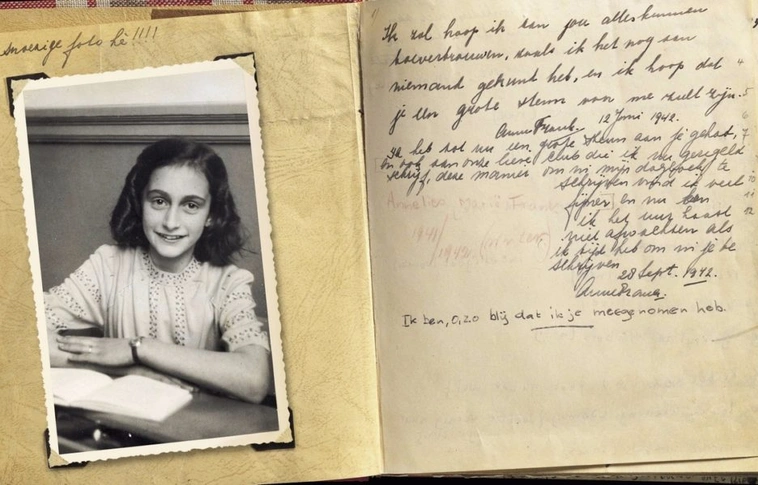 snoezige foto hè!!!!
Ik zal hoop ik aan jou alles kunnen
toevertrouwen, zoals ik het nog aan
niemand gekund heb, en ik hoop dat
je een grote steun voor me zult zijn.
Anne Frank. 12 Juni 1942.
Ik heb tot nu een grote steun aan je gehad,
en ook aan onze lieve club die ik nu geregeld
schrijf, deze manier om in mijn dagboek te
schrijven vind ik veel
fijner en nu kan
ik het uur haast
niet afwachten als
ik tijd heb om in je te
schrijven.
28 Sept. 1942.
Anne Frank.
Ik ben, o, zo blij dat ik je meegenomen heb.
4
5
6
7
10
11
12
1941
1942